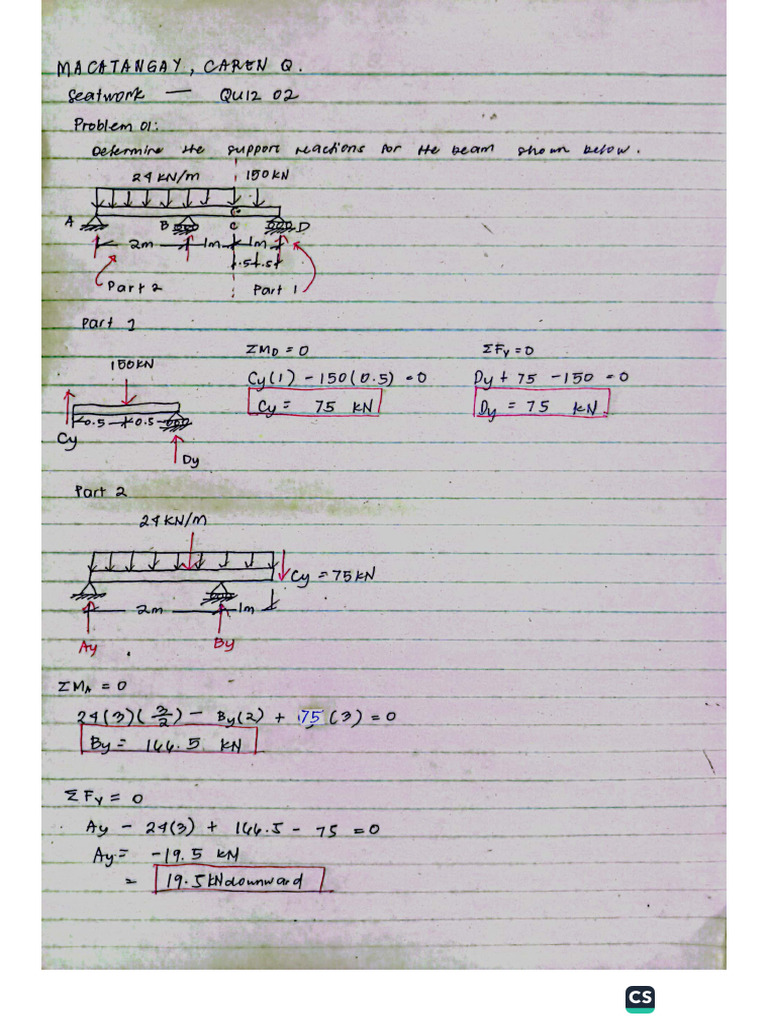 MACATANGAY, CAREN Q.
Seatwork — QUIZ 02
Problem 01:
Determine the support reactions for the beam shown below.
24 KN/m 150 KN
A B C D
2m 1m 1m
.5 .5
Part 2 Part 1
Part 1
150KN
0.5 0.5
Cy
Dy
ΣMD = 0
Cy(1) - 150(0.5) = 0
Cy = 75 KN
ΣFy = 0
Dy + 75 - 150 = 0
Dy = 75 KN
Part 2
24 KN/m
Cy = 75KN
2m 1m
Ay By
ΣMA = 0
24(3)(3/2) - By(2) + 75(3) = 0
By = 166.5 KN
ΣFy = 0
Ay - 24(3) + 166.5 - 75 = 0
Ay = -19.5 KN
= 19.5KN downward
CS